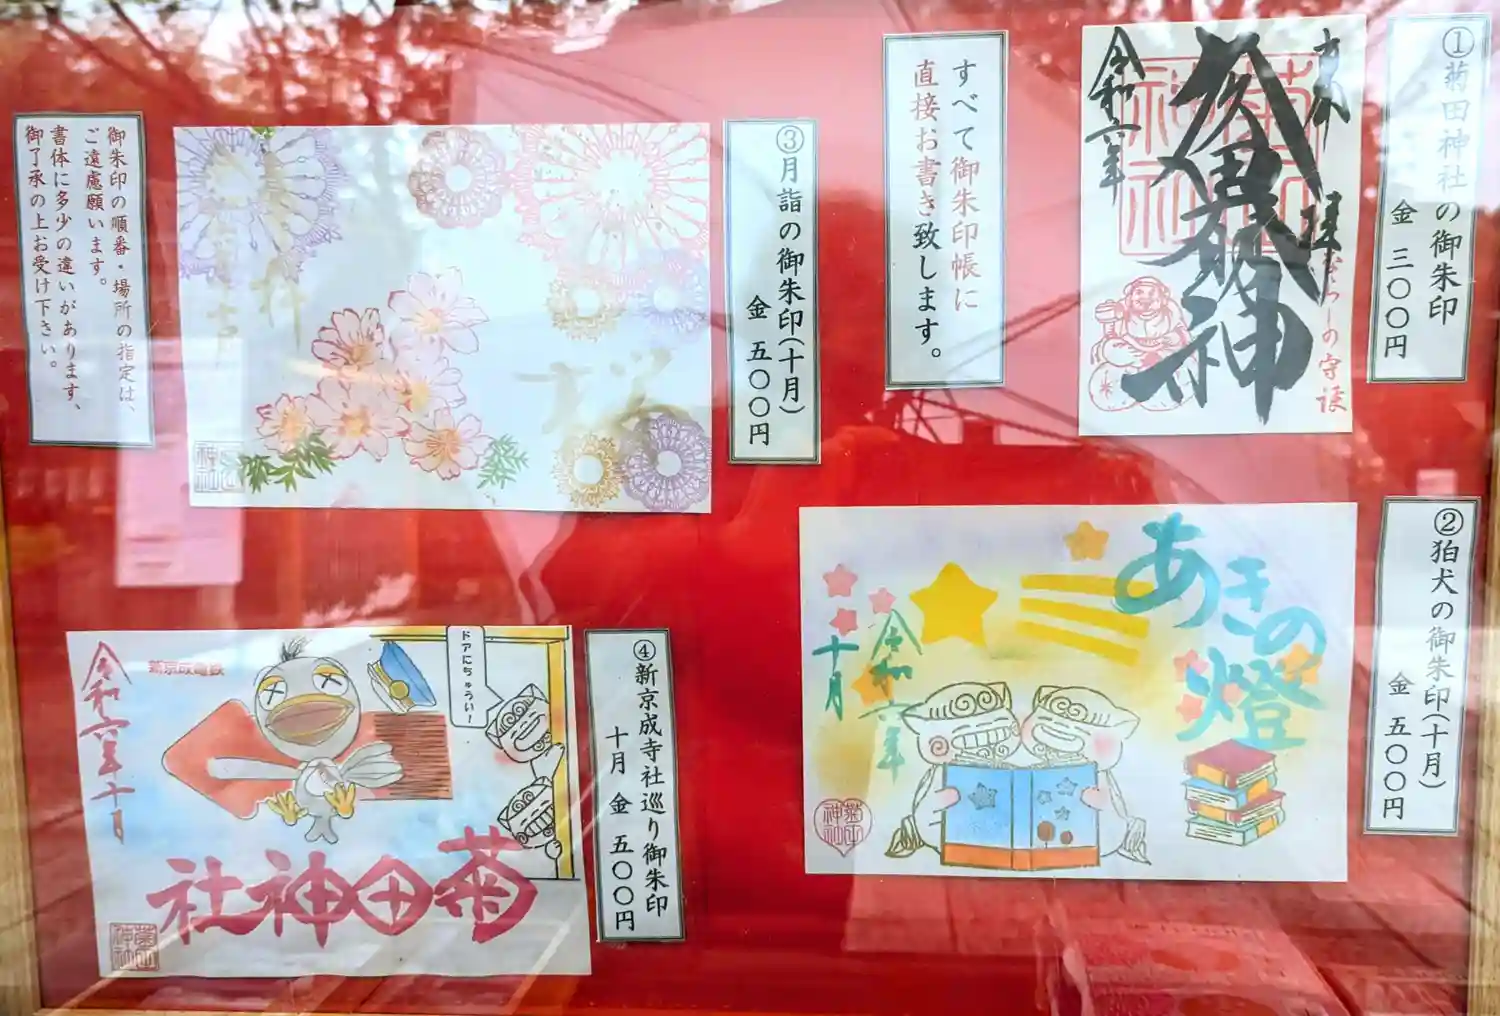 ①菊田神社の御朱印
金 三〇〇円
令和六年
すべて御朱印帳に
直接お書き致します。
③月詣の御朱印(十月)
金 五〇〇円
御朱印の順番・場所の指定は、
ご遠慮願います。
書体に多少の違いがあります、
御了承の上お受け下さい。
②狛犬の御朱印(十月)
金 五〇〇円
あきの
燈
令和六年
十月
④新京成寺社巡り御朱印
十月 金 五〇〇円
ドアにちゅうい!
新京成電鉄
令和六年十月
菊田神社